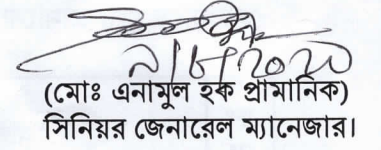 ৯/৮/২০২০
(মোঃ এনামুল হক প্রামানিক)
সিনিয়র জেনারেল ম্যানেজার।